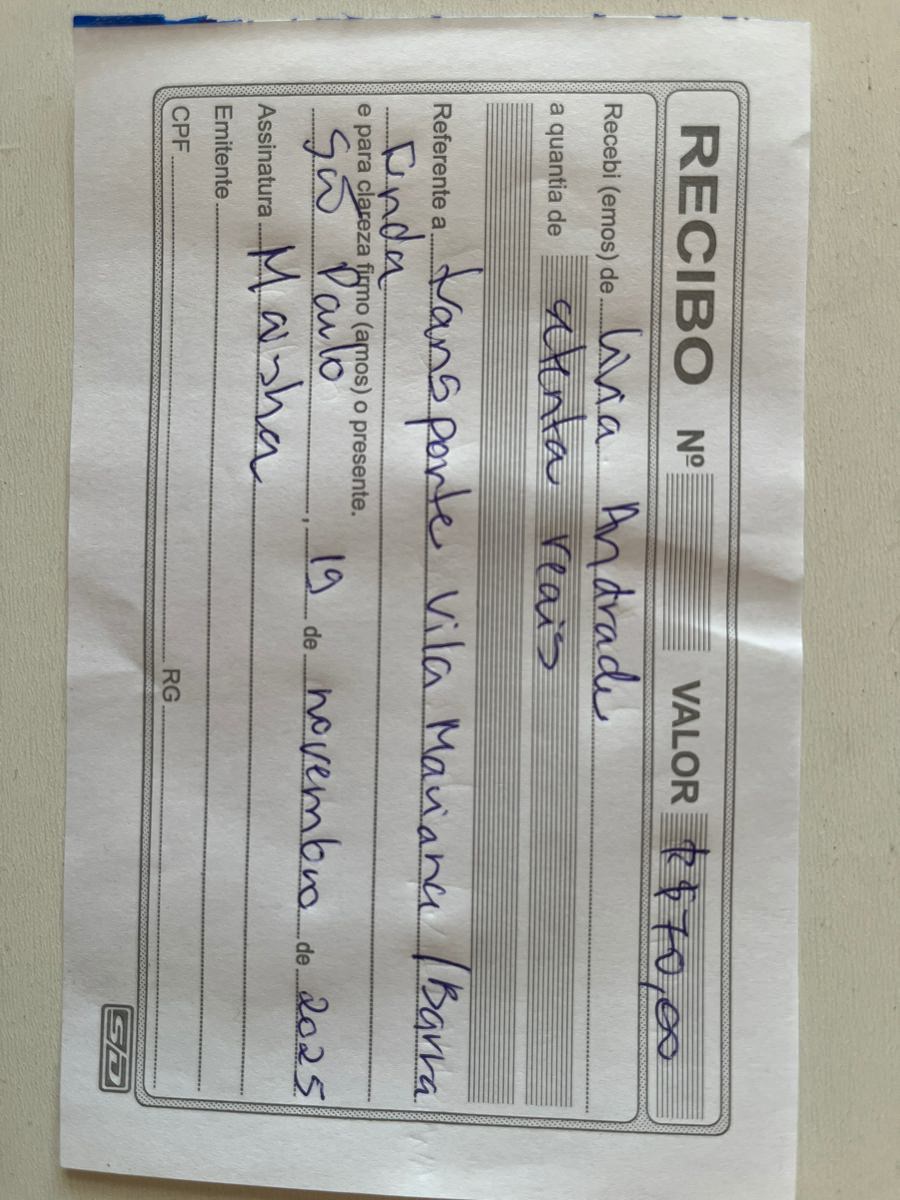 RECIBO Nº VALOR R$70,00
Recebi (emos) de Livia Andrade
a quantia de setenta reais
Referente a transporte Vila Mariana / Barra
Funda
e para clareza firmo (amos) o presente.
São Paulo, 19 de novembro de 2025
Assinatura Marsha
Emitente
CPF RG
SD